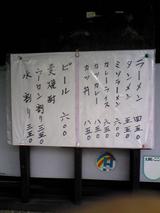 ラーメン 四五〇
タンメン 五五〇
ミソラーメン 六〇〇
カレーライス 六五〇
カツカレー 八五〇
カツ丼 八五〇
ビール 六〇〇
麦焼酎
ウーロン割り 三五〇
水割り 三五〇